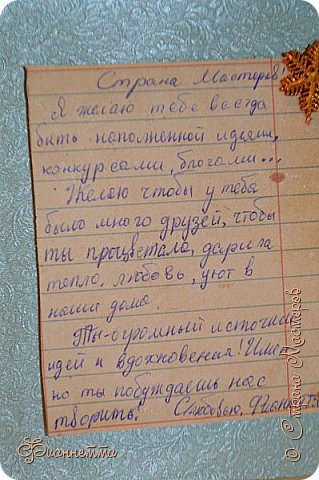 Страна Мастеров!
Я желаю тебе всегда
быть наполненной идеями,
конкурсами, блогами...
Желаю чтобы у тебя
было много друзей, чтобы
ты процветала, дарила
тепло, любовь, уют в
наши дома.
Ты-огромный источник
идей и вдохновения! Имен
но ты побуждаешь нас
творить. С любовью,
Фианнетта
© Страна Мастеров